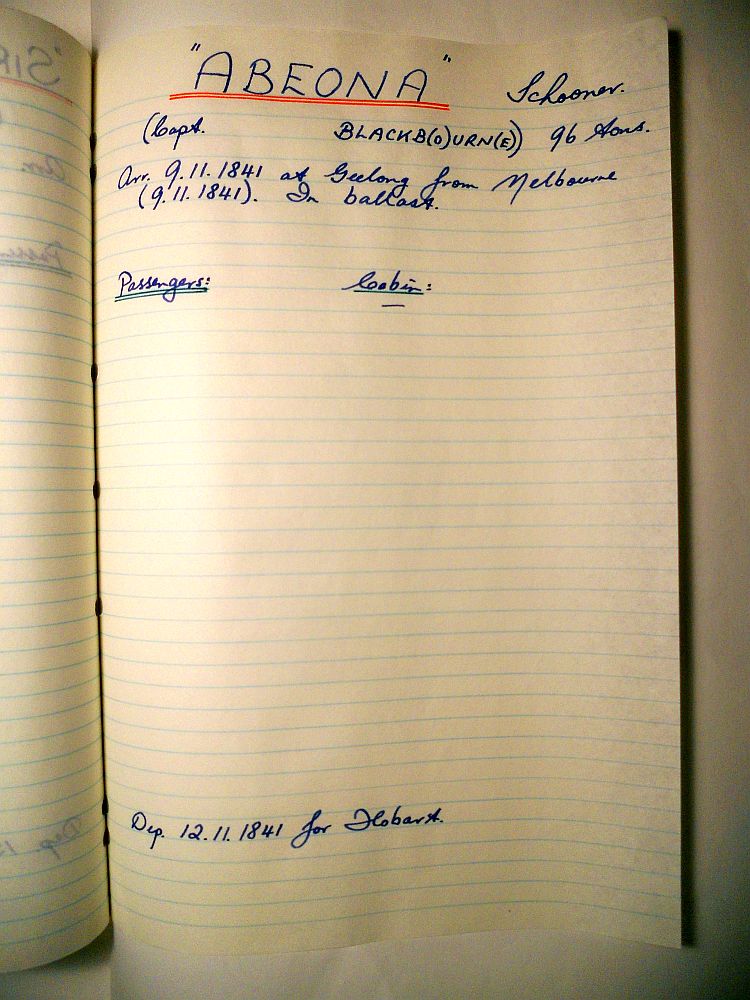 "ABEONA" Schooner.
(Capt. BLACKB(O)URN(E)) 96 tons.
Arr. 9.11.1841 at Geelong from Melbourne
(9.11.1841). In ballast.
Passengers: Cabin:
—
Dep. 12.11.1841 for Hobart.